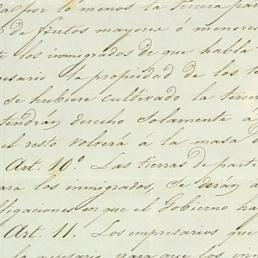 dal por lo menos la tercera par
de frutos mayores ó menores
te los inmigrados de que habla
esario la propiedad de los te
se hubiere cultivado la terce
tendrán derecho solamente a
el resto volverá á la masa d
Art. 10º Las tierras de parti
para los inmigrados, se darán a
bligaciones en que el Gobierno ha
Art. 11. Los empresarios que